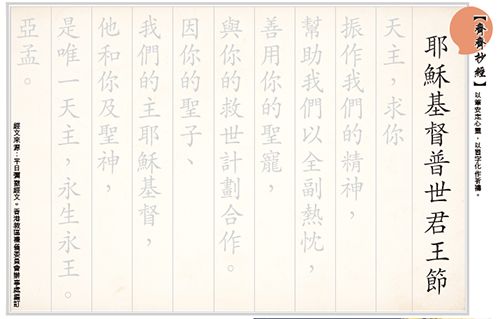 【齊齊抄經】
以筆安定心靈，以習字化作祈禱。
耶穌基督普世君王節
天主，求你
振作我們的精神，
幫助我們以全副熱忱，
善用你的聖寵，
與你的救世計劃合作。
因你的聖子、
我們的主耶穌基督，
他和你及聖神，
是唯一天主，永生永王。
亞孟。
經文來源：平日彌撒經文。香港教區禮儀委員會辦事處編訂